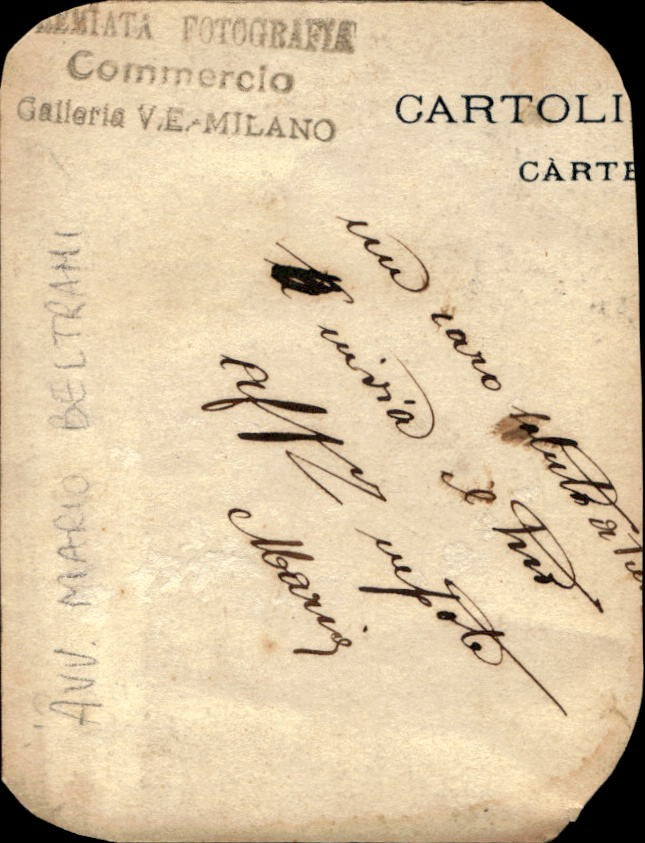 REMIATA FOTOGRAFIA
Commercio
Galleria V.E.-MILANO
CARTOLI
CÀRTE
AVV. MARIO BELTRAMI
un caro saluto a
invia il tuo
aff nipote
Mario